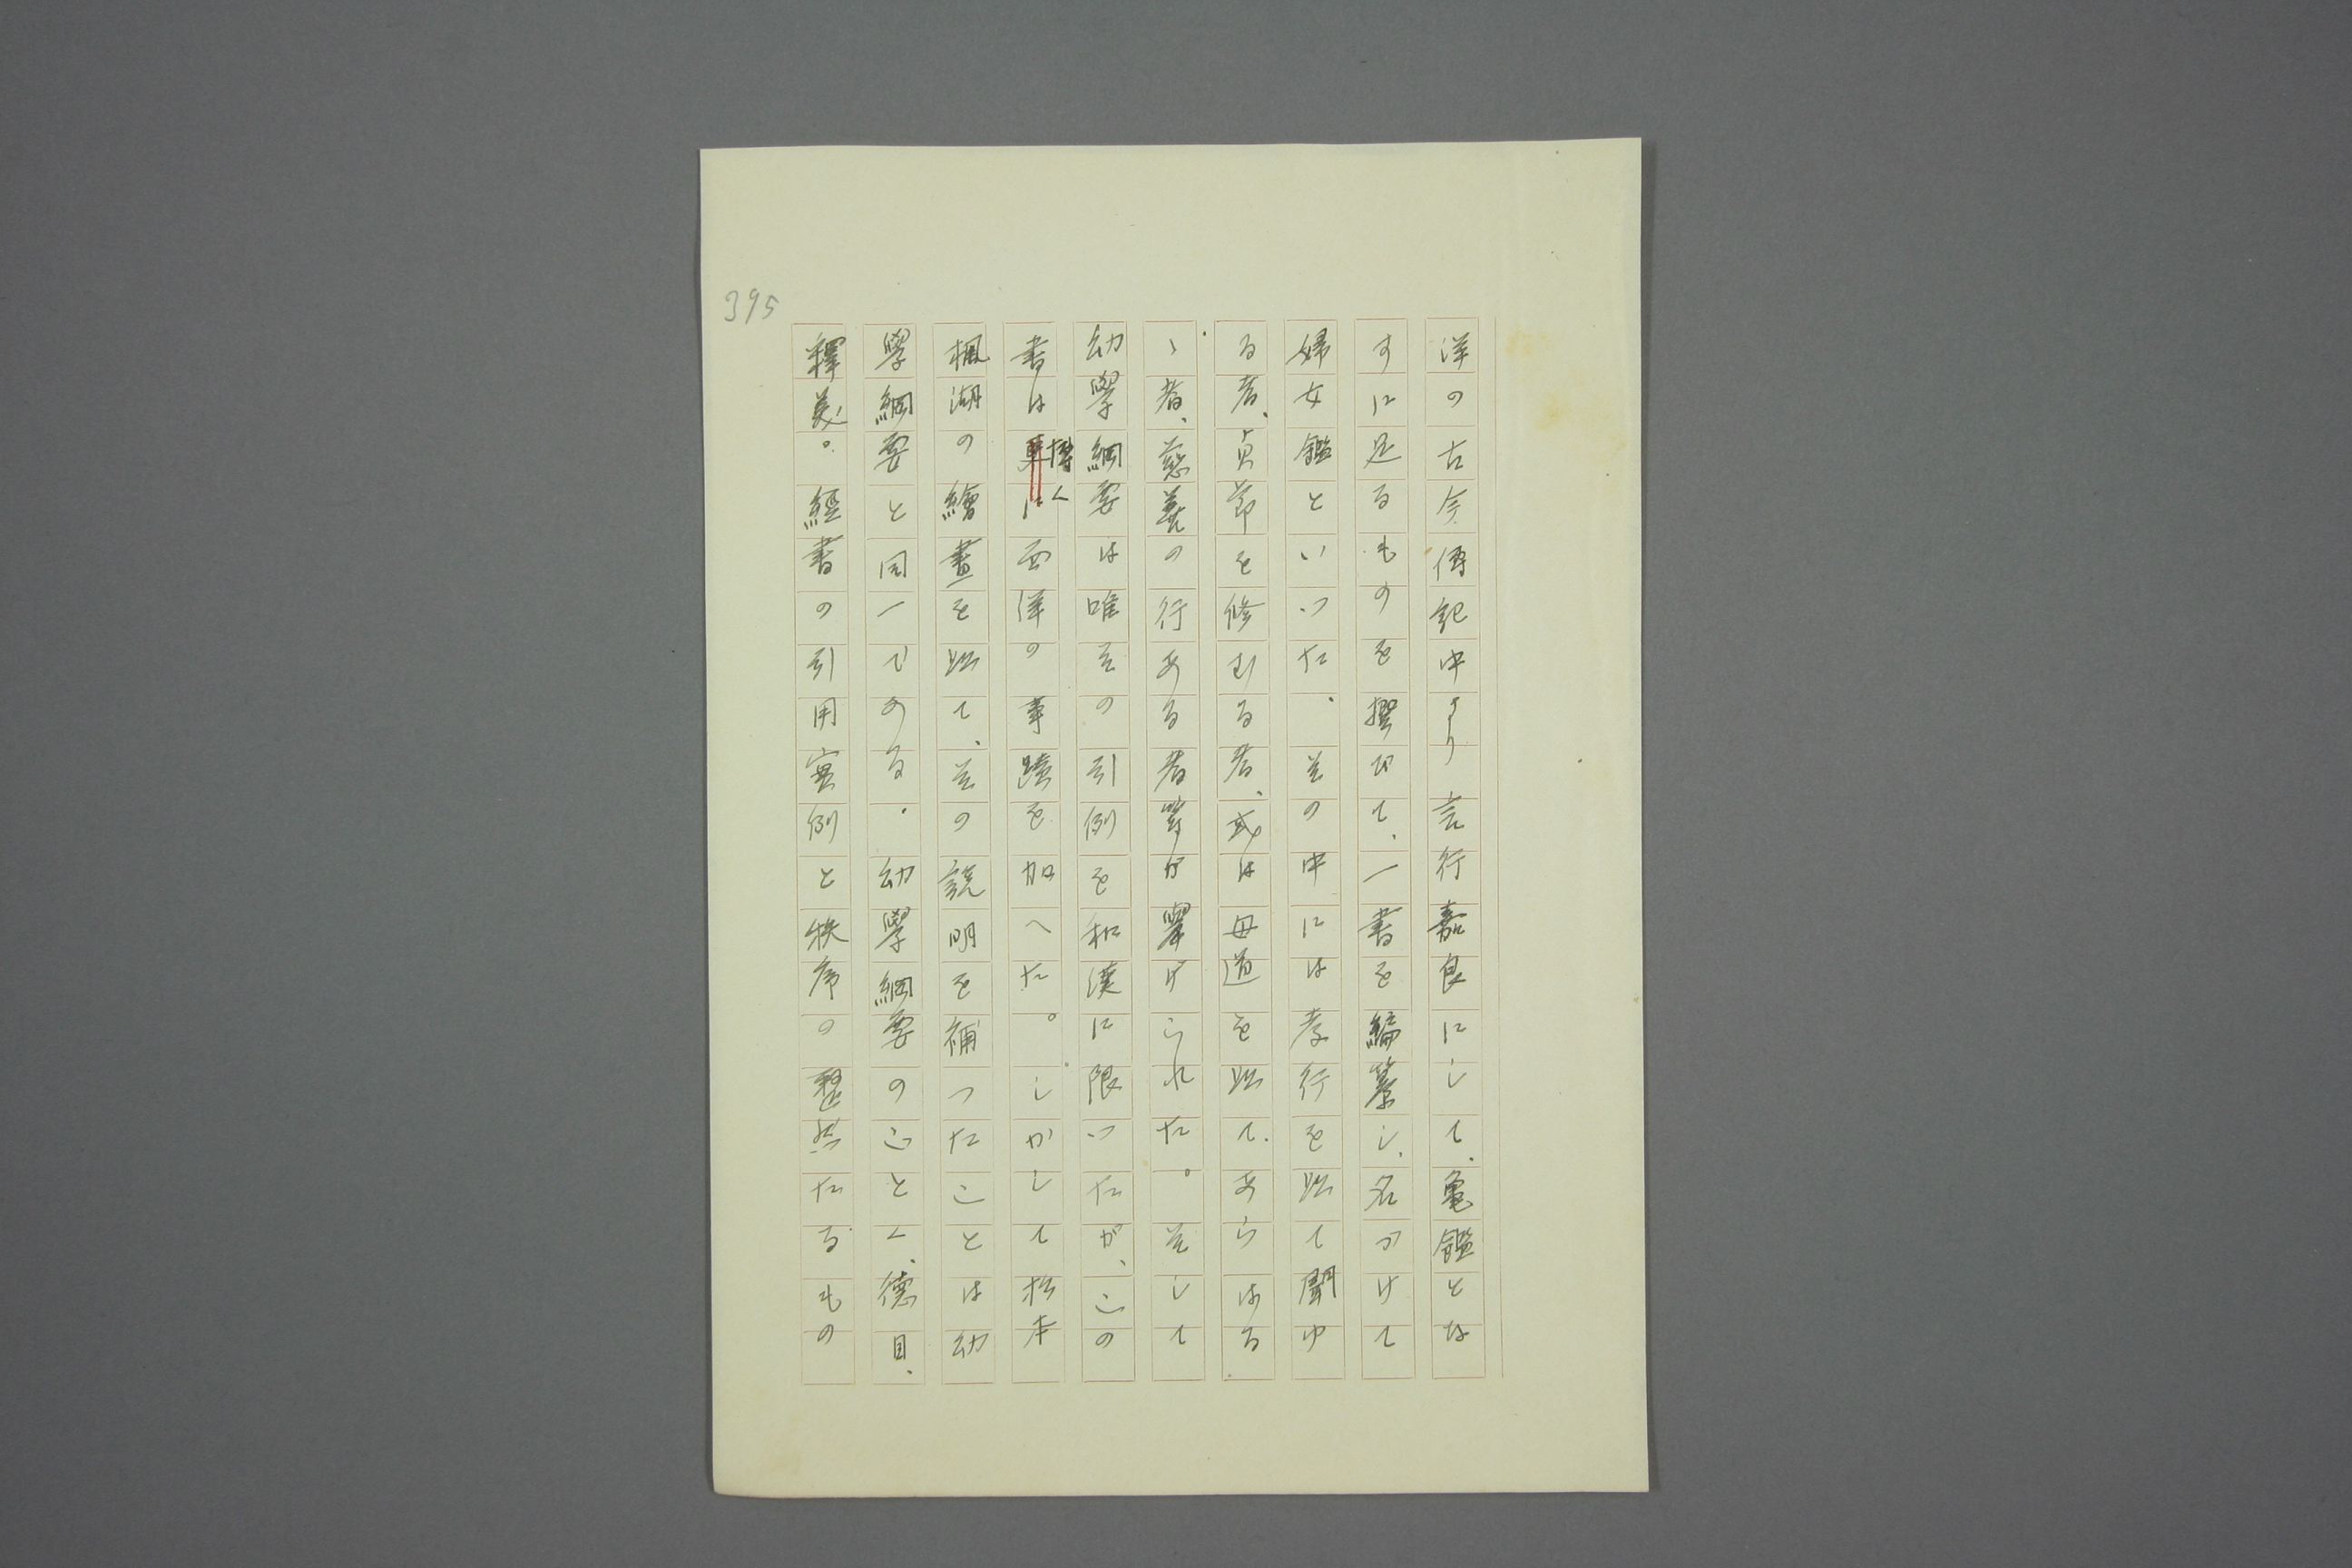 395
洋の古今傳記中より言行嘉良にして、亀鑑とな
すに足るものを撰びて、一書を編纂し、名づけて
婦女鑑といつた、その中には孝行を以て聞ゆ
る者、貞節を修むる者、或は母道を以て、あらはる
ゝ者、慈善の行ある者等が擧げられた。そして
幼學綱要は唯その引例を和漢に限つたが、この
書は博く西洋の事蹟を加へた。しかして松本
楓湖の繪畫を以て、その説明を補つたことは幼
學綱要と同一である。幼學綱要のごとく、德目、
釋義。經書の引用實例と秩序の整然たるもの